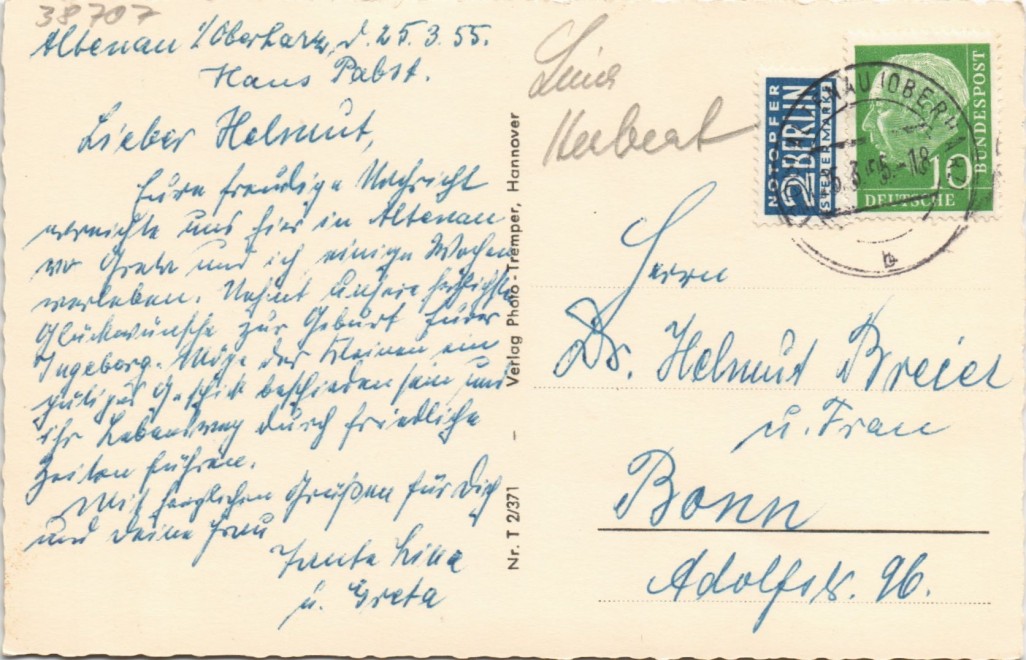 38707
Altenau i/Oberharz, d. 25.3.55.
Haus Pabst.
Lieber Helmut,
Eure freudige Nachricht
erreichte uns hier in Altenau
wo Greta und ich einige Wochen
verleben. Nehmt unsere herzlichsten
Glückwünsche zur Geburt Eurer
Ingeborg. Möge der Kleinen ein
gütiges Geschick beschieden sein und
ihr Lebensweg durch friedliche
Zeiten führen.
Mit herzlichen Grüßen für Dich
und Deine Frau
Tante Lina
u. Greta
Nr. T 2/371 - Verlag Photo-Tremper, Hannover
Herbert
NOTOPFER
2 BERLIN
STEUERMARKE
10
DEUTSCHE
BUNDESPOST
b
Herrn
Dr. Helmut Breier
u. Frau
Bonn
Adolfstr. 96.